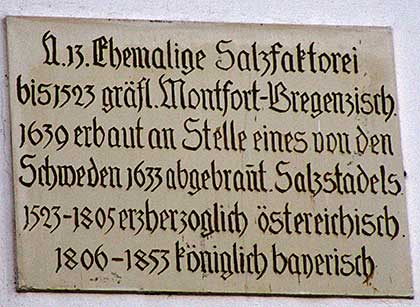 N. 13. Ehemalige Salzfaktorei
bis 1523 gräfl. Montfort-Bregenzisch.
1639 erbaut an Stelle eines von den
Schweden 1633 abgebrañt. Salzstadels
1523-1805 erzherzoglich östereichisch.
1806-1853 königlich bayerisch